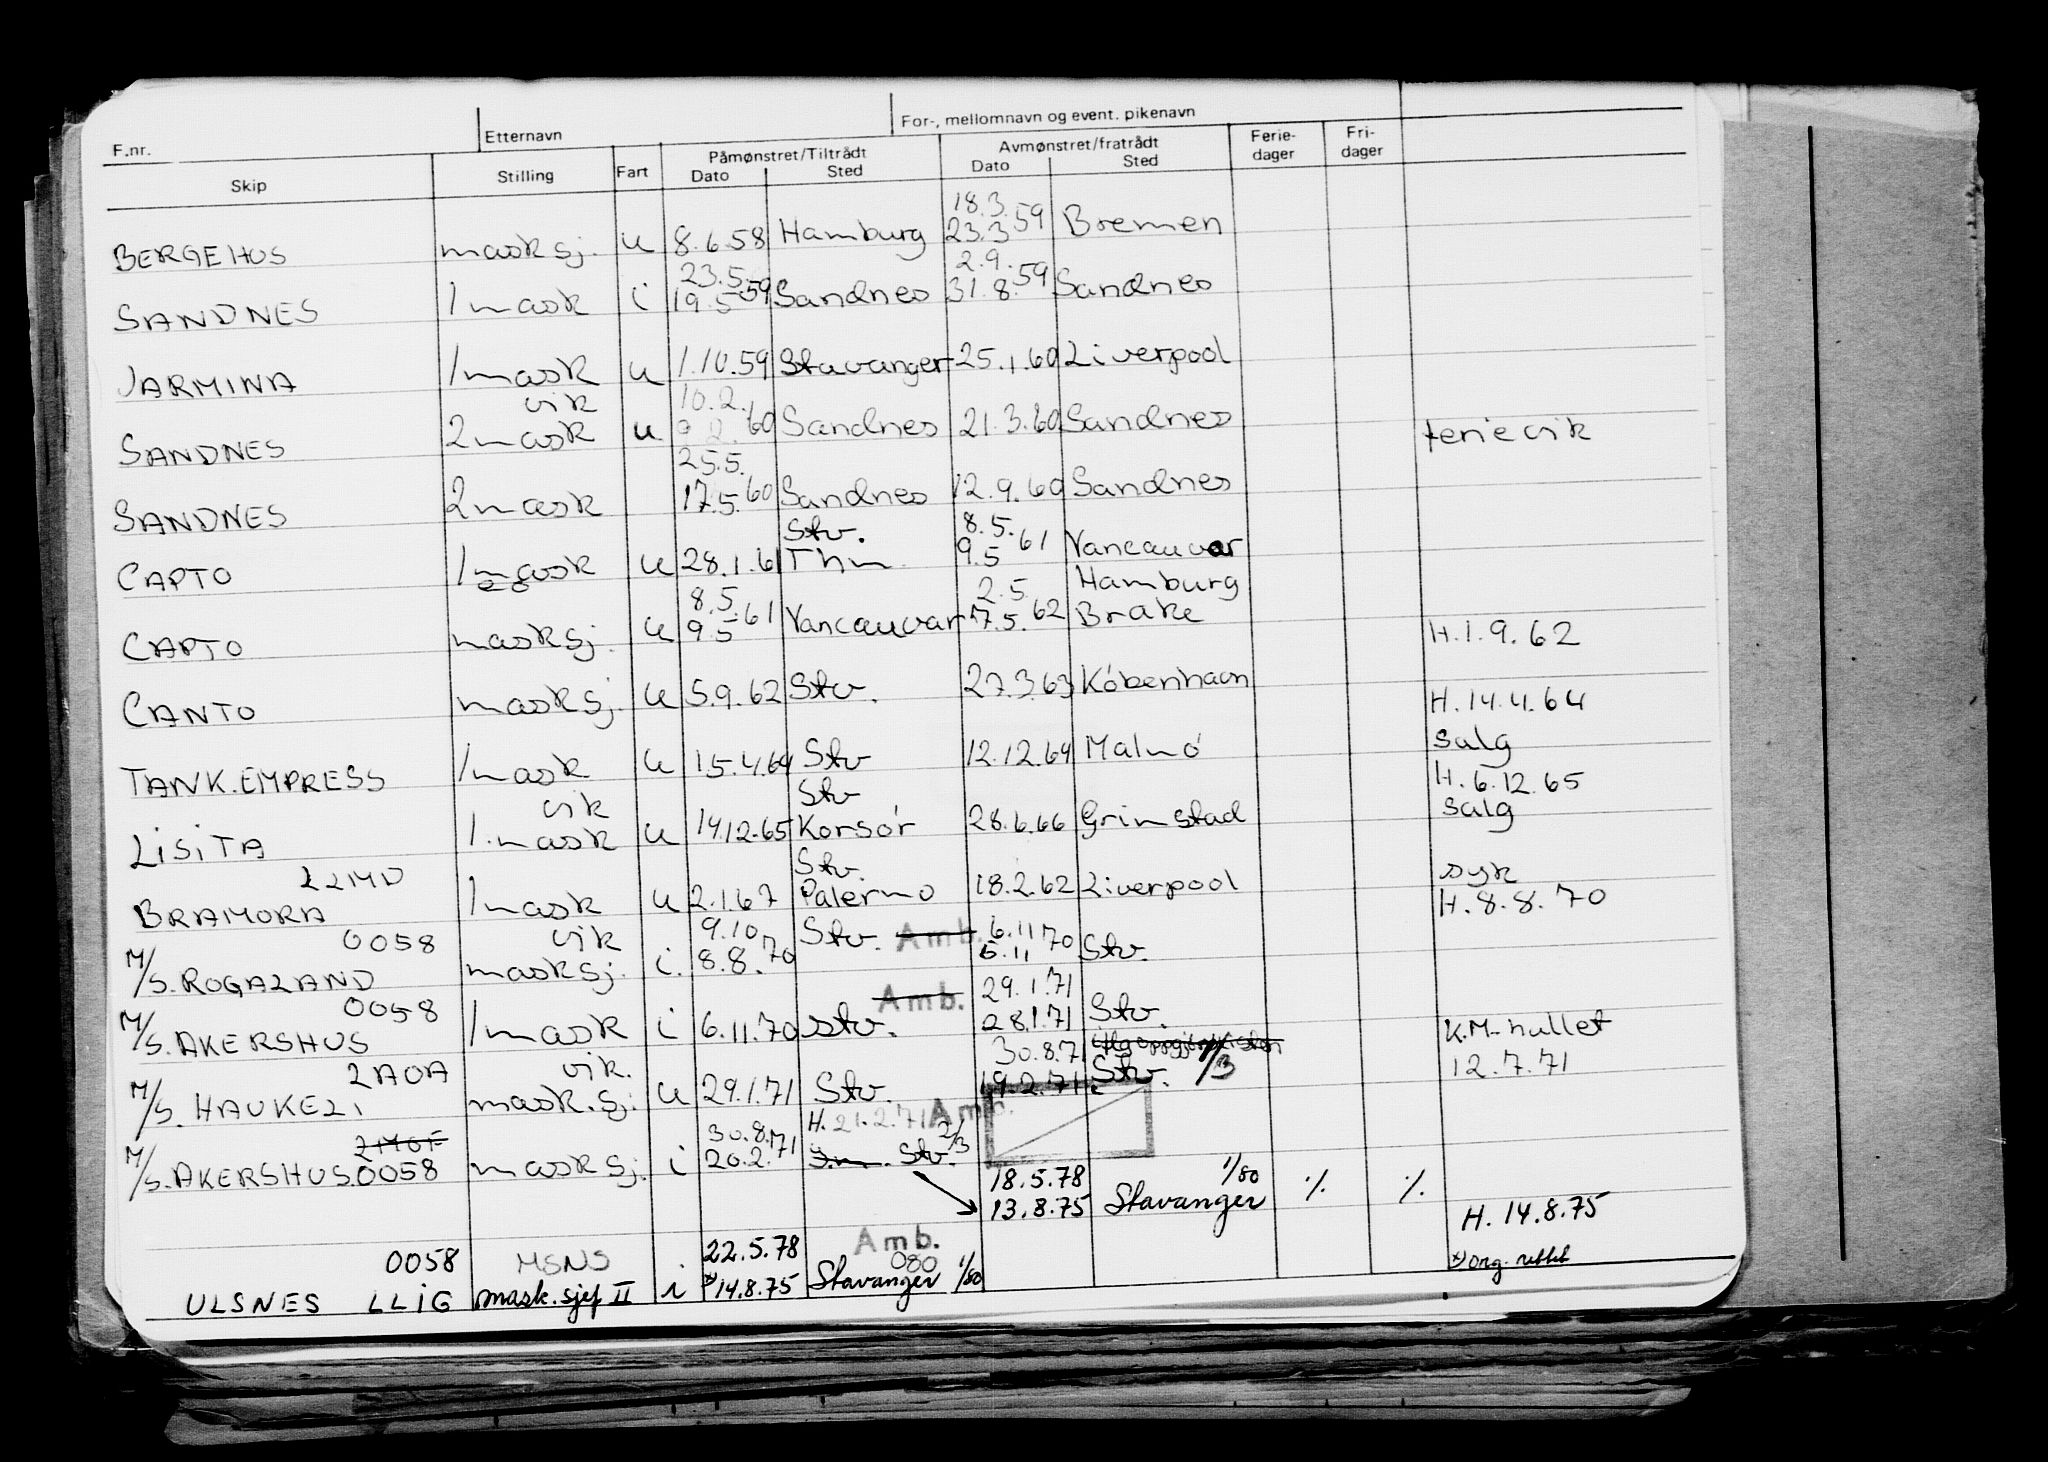 F.nr. Etternavn For-, mellomnavn og event. pikenavn
Skip Stilling Fart Påmønstret/Tiltrådt Dato Sted Avmønstret/fratrådt Dato Sted Ferie-dager Fri-dager
18.3.
BERGEHUS masksj. u 8.6.58 Hamburg 23.3 59 Bremen
23.5. 2.9.
SANDNES 1 mask i 19.5 59 Sandnes 31.8. 59 Sandnes
JARMINA 1 mask u 1.10.59 Stavanger 25.1.60 Liverpool
vik 10.2.
SANDNES 2 mask u 60 Sandnes 21.3.60 Sandnes ferievik
25.5.
SANDNES 2 mask 17.5.60 Sandnes 12.9.60 Sandnes
Stv. 8.5.
CAPTO 1 mask u 28.1.61 Thm. 9.5 61 Vancauvar
8.5. 2.5. Hamburg
CAPTO masksj. u 9.5 61 Vancauvar 17.5.62 Brake H.1.9.62
CANTO masksj. u 5.9.62 Stv. 27.3.63 Kóbenhavn H.14.4.64
salg
TANK.EMPRESS 1 mask u 15.4.64 Stv 12.12.64 Malmó H.6.12.65
vik Stv salg
LISITA 1.mask u 14.12.65 Korsór 28.6.66 Grimstad
LLMD Stv. syk
BRAMORA 1 mask u 2.1.67 Palermo 18.2.62 Liverpool H.8.8.70
0058 vik 9.10 Stv. Amb. 6.11
M/S.ROGALAND masksj. i. 8.8.70 5.11 70 Stv.
0058 Amb. 29.1.71
M/S.AKERSHUS 1 mask i 6.11.70 stv. 28.1.71 Stv. K.M-hullet
LAOA vik. 30.8.71 12.7.71
M/S. HAUKELI mask.sj. u 29.1.71 Stv. 19.2.71 Stv. 1/3
H. 21.2.71 Amb.
30.8.71 2/3
M/S.AKERSHUS.0058 masksj. i 20.2.71 Stv.
18.5.78 1/80
13.8.75 Stavanger ./. ./. H. 14.8.75
0058 MSNS 22.5.78 Amb. 080 x) org. rettet
ULSNES LLIG mask.sjef II i x) 14.8.75 Stavanger 1/80